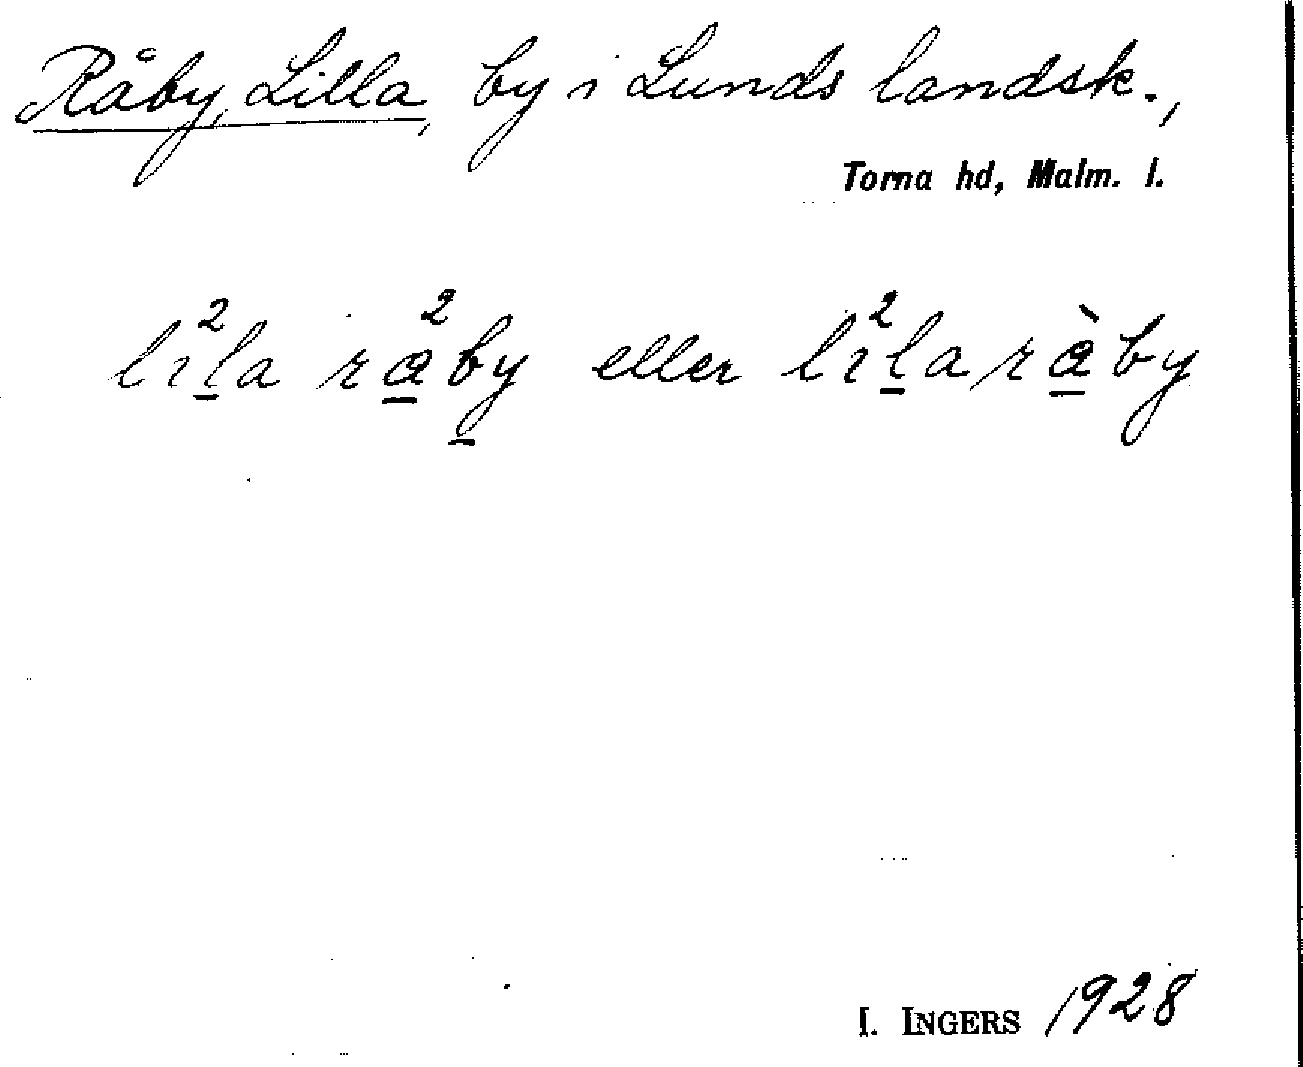 Råby, Lilla, by i Lunds landsk.,
Torna hd, Malm. l.
lı²l̲a ra̲²by̲ eller lı²l̲a rà̲by
I. INGERS 1928